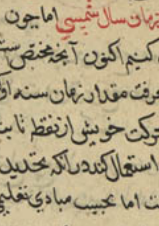 زمان سال شمسی اما چون
کنیم اکنون آنچه مختص
معرفت مقدار زمان سنه
حرکت خویش از نقطه تا
استعمال کنند در آنکه تحدید
اما بحسب مبادی تعلیمی